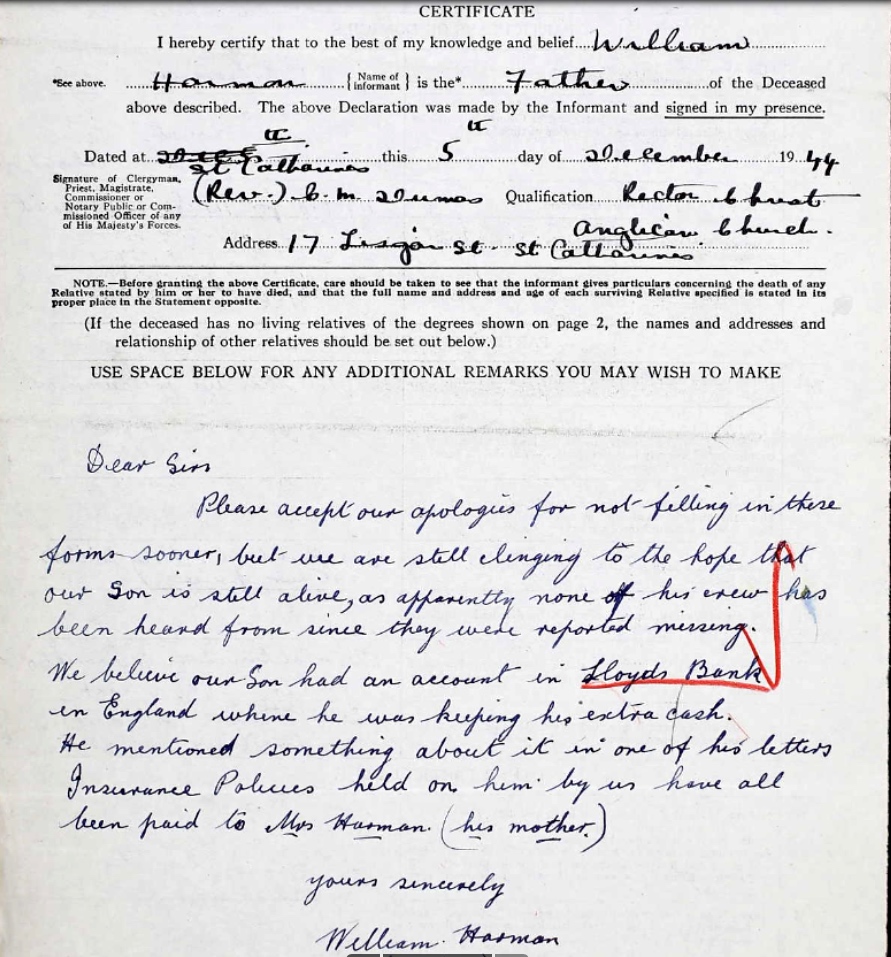 CERTIFICATE
I hereby certify that to the best of my knowledge and belief....William
*See above. Harman {Name of Informant} is the* Father of the Deceased
above described. The above Declaration was made by the Informant and signed in my presence.
Dated at St Catharines this 5th day of December 1944
Signature of Clergyman, Priest, Magistrate, Commissioner or Notary Public or Commissioned Officer of any of His Majesty's Forces.
(Rev.) C. M. Qualification Rector Christ
Anglican Church.
Address 17 St. St Catharines
NOTE.—Before granting the above Certificate, care should be taken to see that the informant gives particulars concerning the death of any
Relative stated by him or her to have died, and that the full name and address and age of each surviving Relative specified is stated in its
proper place in the Statement opposite.
(If the deceased has no living relatives of the degrees shown on page 2, the names and addresses and
relationship of other relatives should be set out below.)
USE SPACE BELOW FOR ANY ADDITIONAL REMARKS YOU MAY WISH TO MAKE
Dear Sirs
Please accept our apologies for not filling in these
forms sooner, but we are still clinging to the hope that
our Son is still alive, as apparently none of his crew has
been heard from since they were reported missing.
We believe our Son had an account in Lloyds Bank
in England where he was keeping his extra cash.
He mentioned something about it in one of his letters
Insurance Policies held on him by us have all
been paid to Mrs Harman. (his mother.)
yours sincerely
William Harman